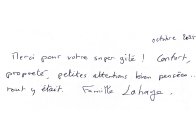 octobre 2025
Merci pour votre super gîte ! Confort,
propreté, petites attentions bien pensées...
tout y était. Famille